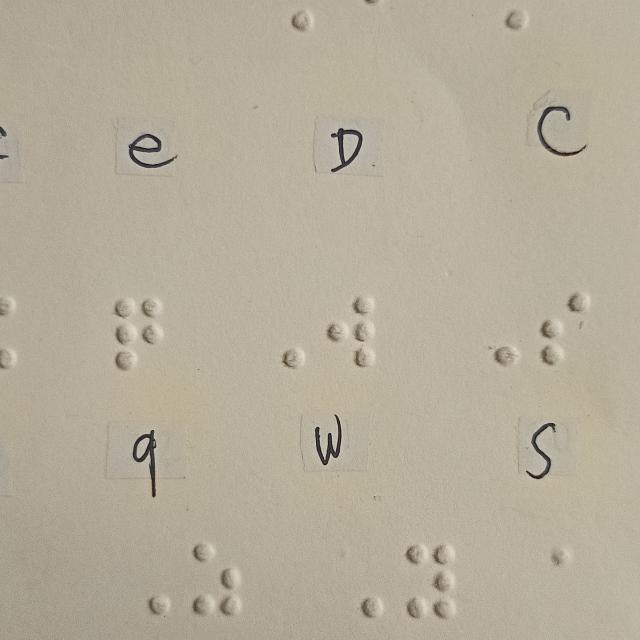 e D C
⠟ ⠠⠺ ⠠⠎
q W S
⠠⠵ ⠠⠽